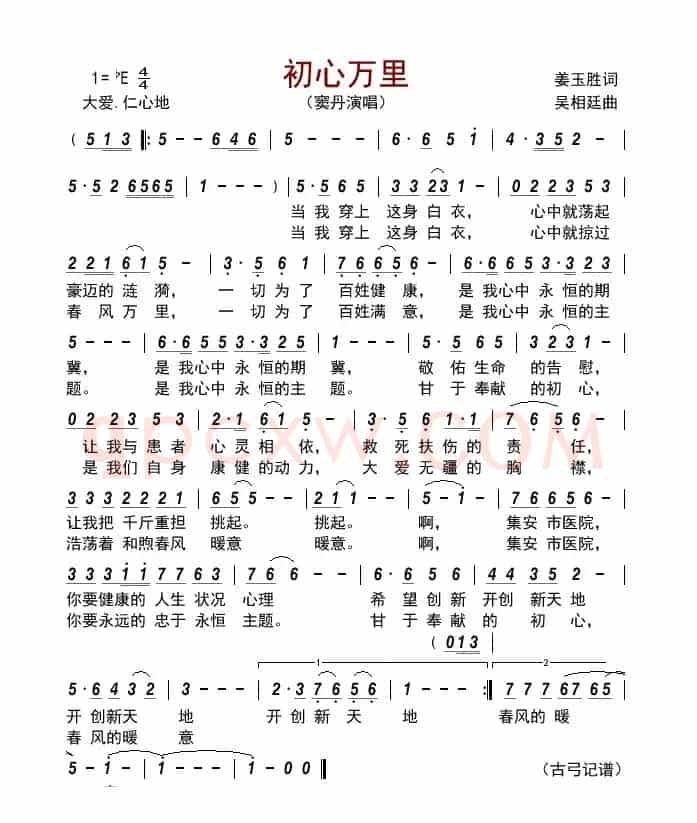 初心万里
1=♭E 4/4
姜玉胜词
大爱.仁心地
（窦丹演唱）
吴相廷曲
( 5 1 3 ‖: 5 - - 6 4 6 | 5 - - - | 6 · 6 5 1 | 4 · 3 5 2 - |
5 · 5 2 6565 | 1 - - - ) | 5 · 5 6 5 | 3 3 23 1 - | 0 2 2 2 3 5 3 |
当 我 穿上 这身 白 衣， 心中就荡起
当 我 穿上 这身 白 衣， 心中就掠过
2 2 1 6 1 5 - | 3 · 5 1 2 | 7 6 6 5 6 - | 6 · 6 5 3 · 3 2 3 |
豪迈的 涟 漪， 一 切 为 了 百姓健 康， 是 我心中 永 恒的期
春 风 万 里， 一 切 为 了 百姓满 意， 是 我心中 永 恒的主
5 - - - | 6 · 6 5 5 3 · 3 2 5 | 1 - - - | 5 · 5 6 5 | 3 23 1 - |
冀， 是 我心中 永 恒的期 冀， 敬 佑 生命 的 告 慰，
题。 是 我心中 永 恒的主 题。 甘 于 奉献 的 初 心，
0 2 2 2 3 5 | 2 · 1 6 1 5 - | 6 · 1 6 5 1 · 1 | 7 6 5 5 - |
让 我 与 患者 心 灵 相 依， 救 死 扶伤 的 责 任，
是 我们 自身 康 健 的动 力， 大 爱 无疆 的 胸 襟，
3 3 3 2 2 2 1 | 6 5 5 - | 2 1 1 - | 5 - 1 - | 7 6 6 5 6 - |
让我把 千斤重担 挑起。 挑起。 啊， 集安 市医院，
浩荡着 和煦春风 暖意 暖意。 啊， 集安 市医院，
3 3 3 1 1 7 7 6 3 | 7 6 6 - - | 6 · 6 5 6 | 4 4 3 5 2 - |
你要健康的 人生 状况 心理 希 望 创新 开创 新天 地
你要永远的 忠于 永恒 主题。 甘 于 奉献 的 初 心，
( 0 1 3
5 · 6 4 3 2 | 3 - - - | 2 · 3 7 6 5 6 | 1 - - - :‖ 7 7 7 67 65 |
1
2
开 创新天 地 开 创 新 天 地 春风的 暖
春 风的暖 意
5 - 1 - | 1 - - - | 1 - 0 0 ‖
（古弓记谱）